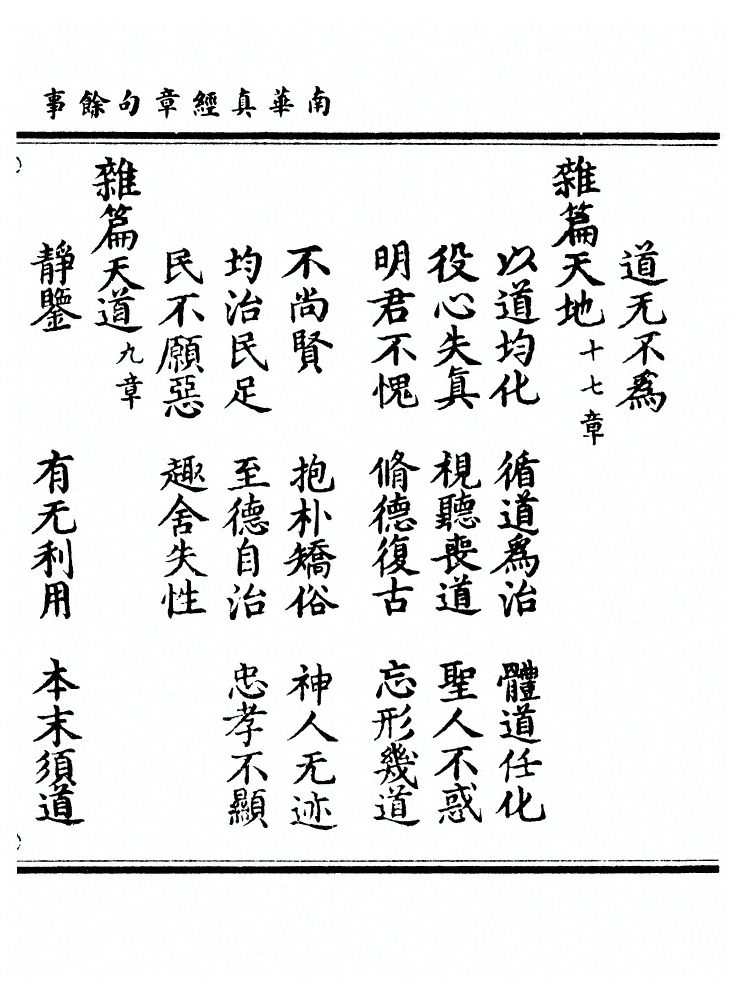 南華真經章句餘事
道无不爲
雜篇天地十七章
以道均化 循道爲治 體道任化
役心失真 視聽喪道 聖人不惑
明君不愧 脩德復古 忘形幾道
不尚賢 抱朴矯俗 神人无迹
均治民足 至德自治 忠孝不顯
民不願惡 趣舍失性
雜篇天道九章
靜鑒 有无利用 本末須道